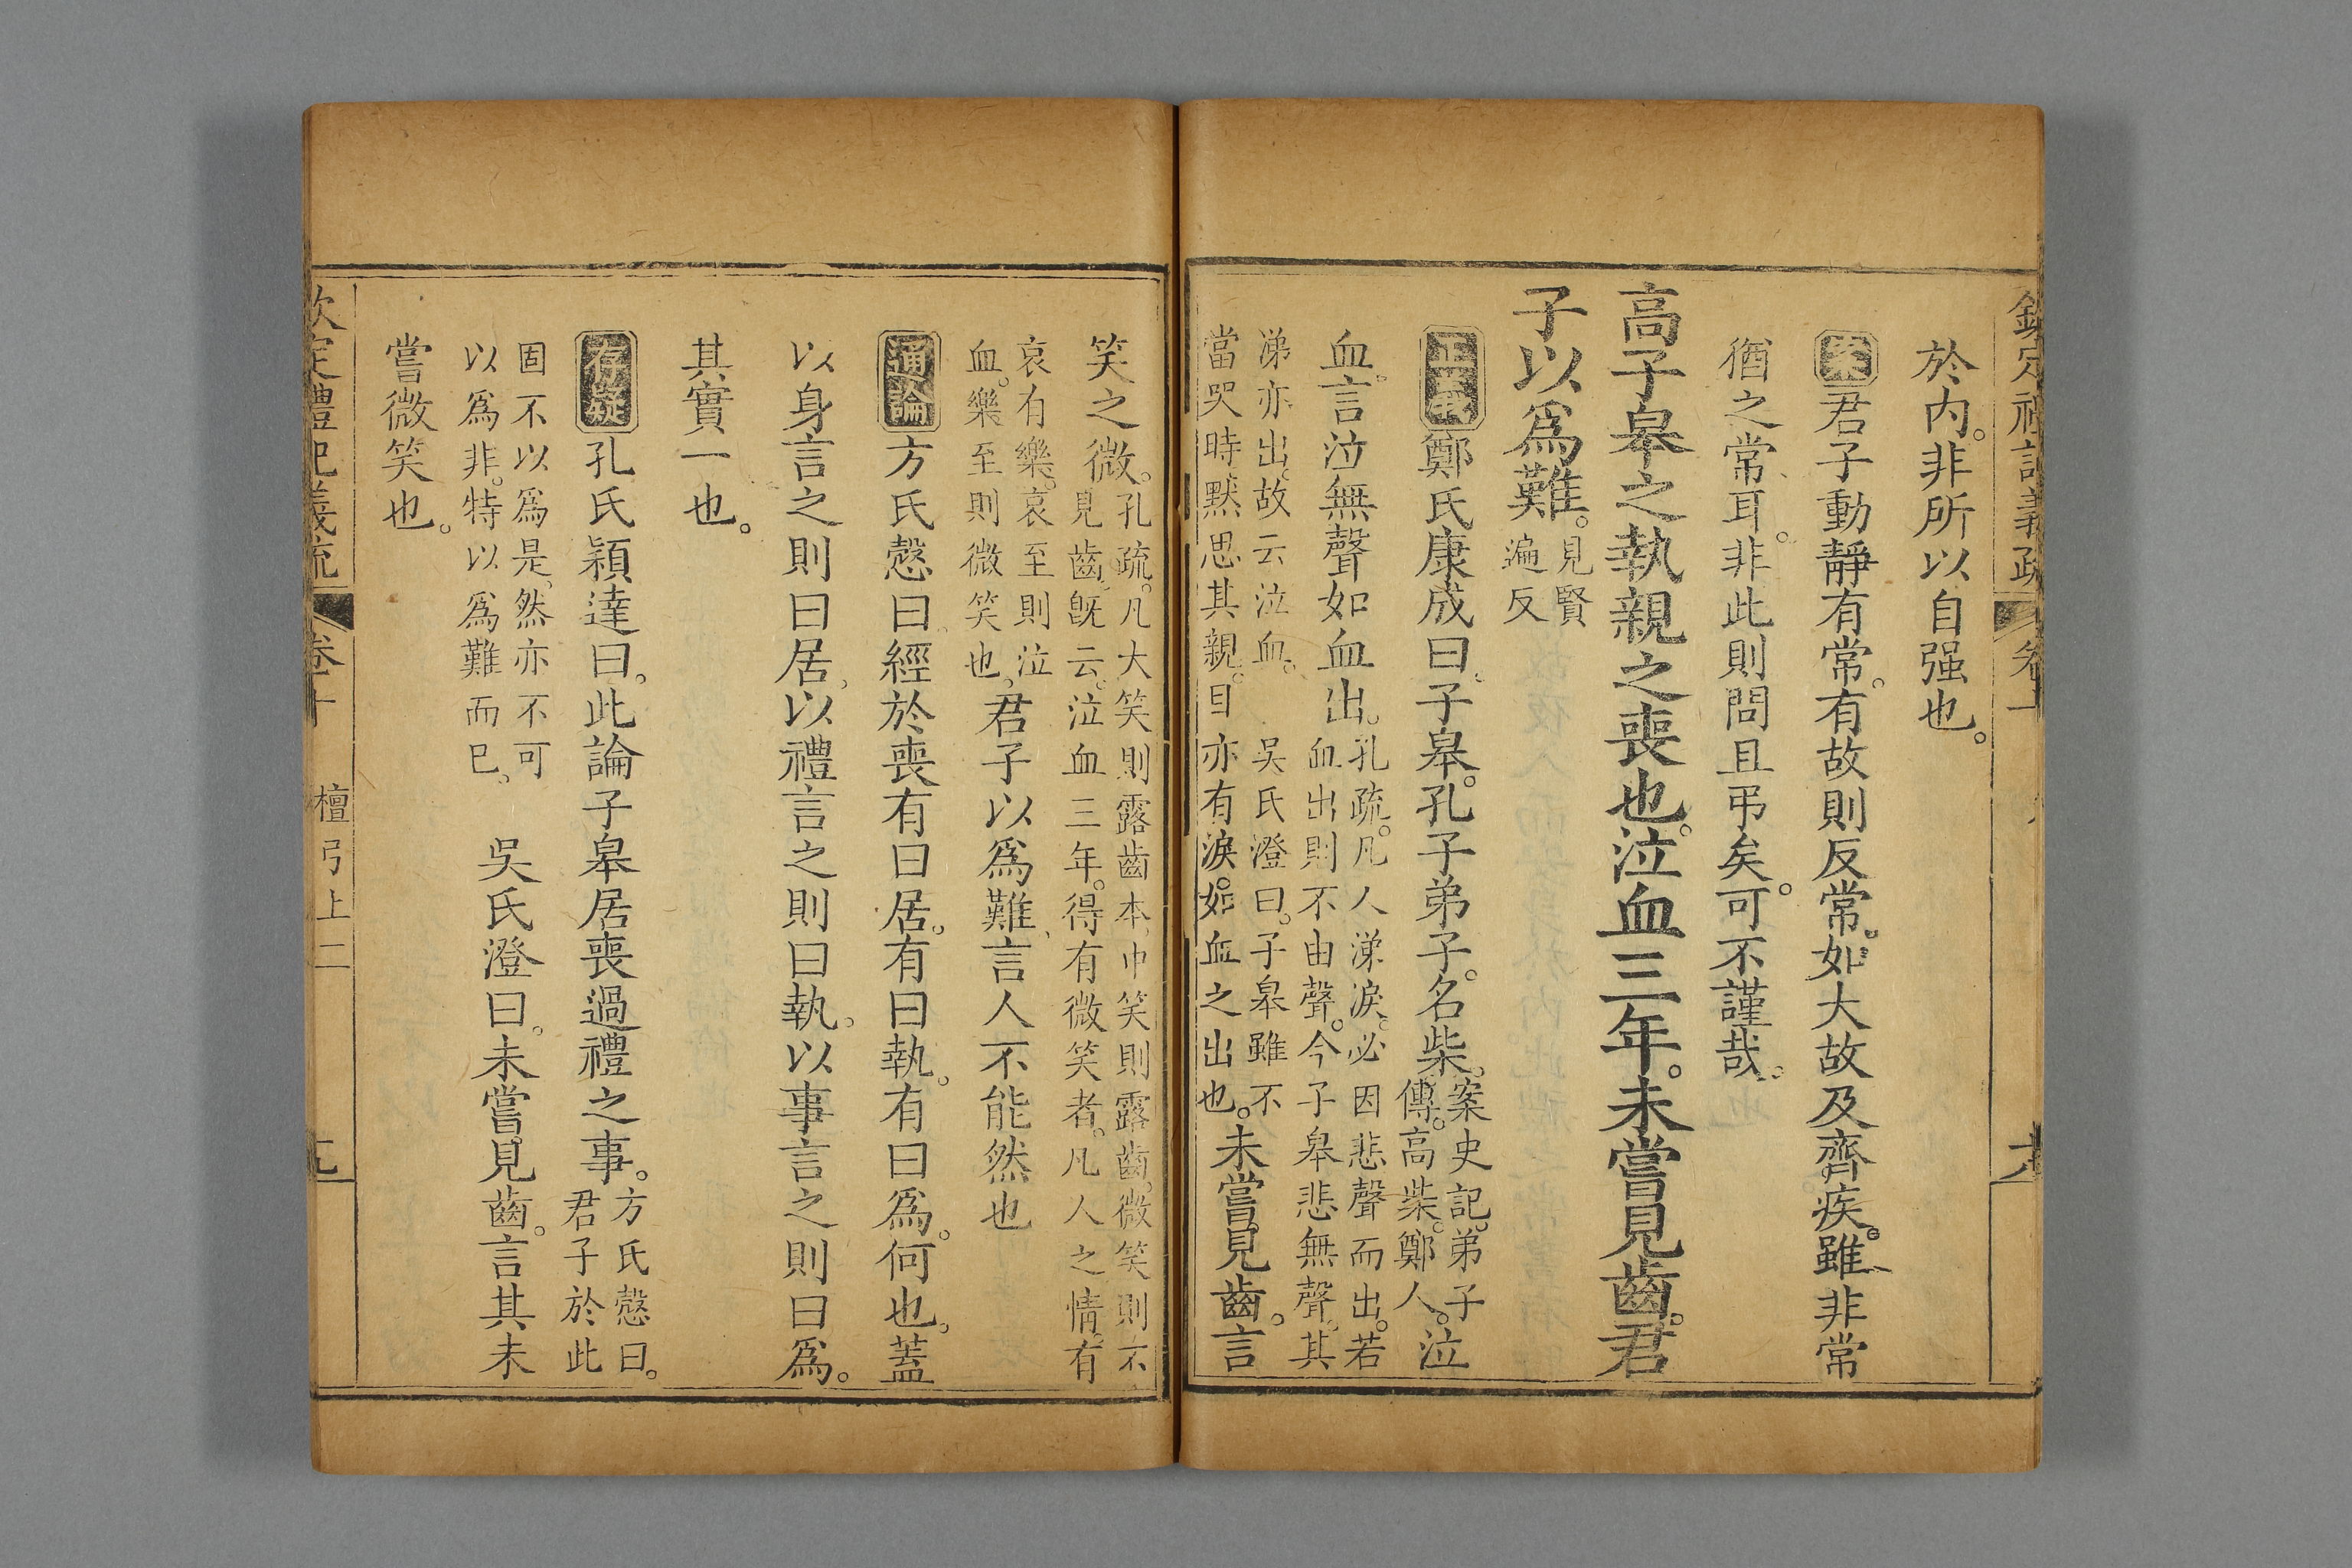 欽定禮記義疏 卷十
於內。非所以自强也。
案君子動靜有常。有故則反常。如大故及齊疾。雖非常
猶之常耳。非此則問且弔矣。可不謹哉。
高子皋之執親之喪也。泣血三年。未嘗見齒。君
子以爲難。見賢
遍反
正義鄭氏康成曰。子皋。孔子弟子。名柴。案史記。弟子
傳。高柴。鄭人。泣
血。言泣無聲如血出。孔疏。凡人涕淚。必因悲聲而出。若
血出則不由聲。今子皋悲無聲。其
涕亦出。故云泣血。 吳氏澄曰。子皋雖不
當哭時。默思其親。目亦有淚。如血之出也。未嘗見齒。言
笑之微。孔疏。凡大笑則露齒本。中笑則露齒。微笑則不
見齒。旣云。泣血三年。得有微笑者。凡人之情。有
哀有樂。哀至則泣
血。樂至則微笑也。君子以爲難。言人不能然也
通論方氏慤曰。經於喪有曰居。有曰執。有曰爲。何也。蓋
以身言之則曰居。以禮言之則曰執。以事言之則曰爲。
其實一也。
存疑孔氏穎達曰。此論子皋居喪過禮之事。方氏慤曰。
君子於此
固不以爲是。然亦不可
以爲非。特以爲難而已。 吳氏澄曰。未嘗見齒。言其未
嘗微笑也。
欽定禮記義疏 卷十 檀弓上二